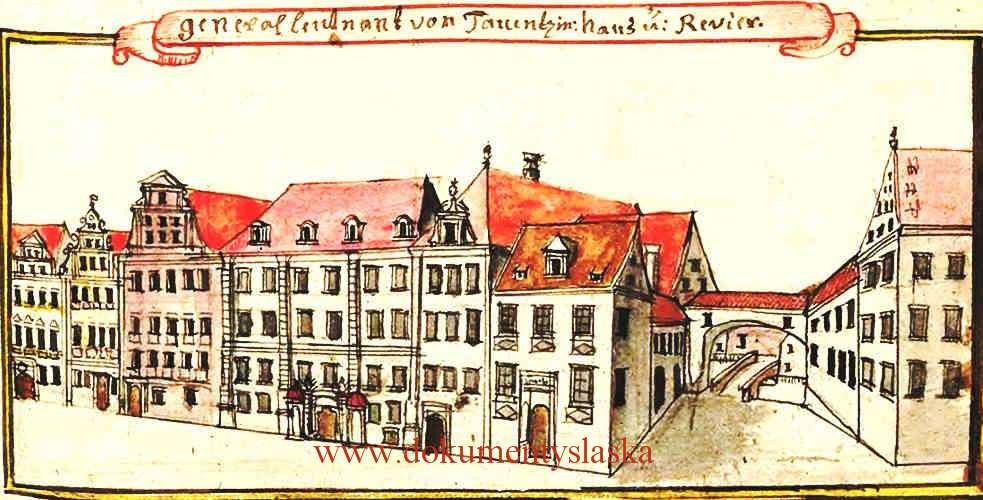 general leutnant von Tauentzin: haus u: Revier.
www.dokumentyslaska